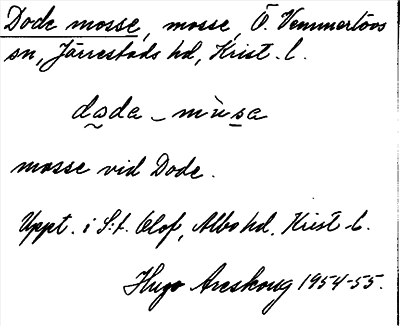 Dode mosse, mosse, Ö. Vemmerlövs
sn, Järrestads hd, Krist. l.
dada - mùsa
mosse vid Dode.
Uppt. i S:t. Olof, Albo hd. Krist l.
Hugo Areskoug 1954-55.